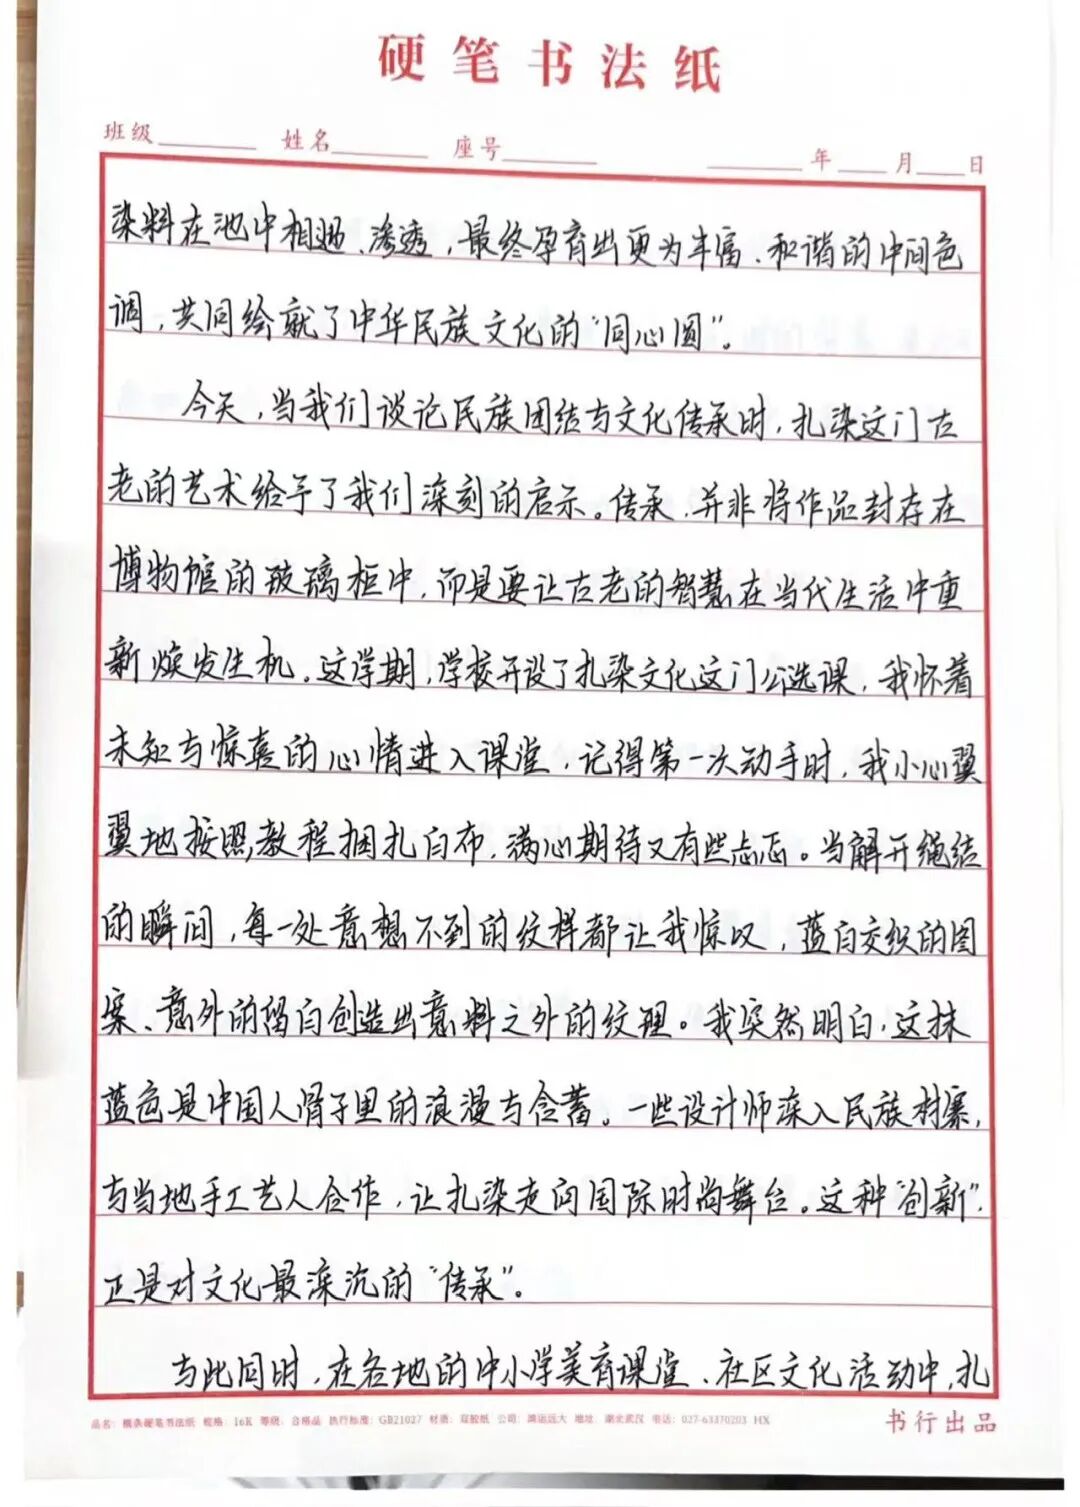 硬笔书法纸
班级 姓名 座号 年 月 日
染料在池中相遇、渗透，最终孕育出更为丰富、和谐的中间色
调，共同绘就了中华民族文化的“同心圆”。
今天，当我们谈论民族团结与文化传承时，扎染这门古
老的艺术给予了我们深刻的启示。传承，并非将作品封存在
博物馆的玻璃柜中，而是要让古老的智慧在当代生活中重
新焕发生机。这学期，学校开设了扎染文化这门公选课，我怀着
未知与惊喜的心情进入课堂，记得第一次动手时，我小心翼
翼地按照教程捆扎白布，满心期待又有些忐忑。当解开绳结
的瞬间，每一处意想不到的纹样都让我惊叹，蓝白交织的图
案、意外的留白创造出意料之外的纹理。我突然明白，这抹
蓝色是中国人骨子里的浪漫与含蓄。一些设计师深入民族村寨，
与当地手工艺人合作，让扎染走向国际时尚舞台。这种“创新”，
正是对文化最深沉的“传承”。
与此同时，在各地的中小学美育课堂、社区文化活动中，扎
品名：横条硬笔书法纸 规格：16K 等级：合格品 执行标准：GB21027 材质：双胶纸 公司：鸿运远大 地址：湖北武汉 电话：027-63370203 HX
书行出品